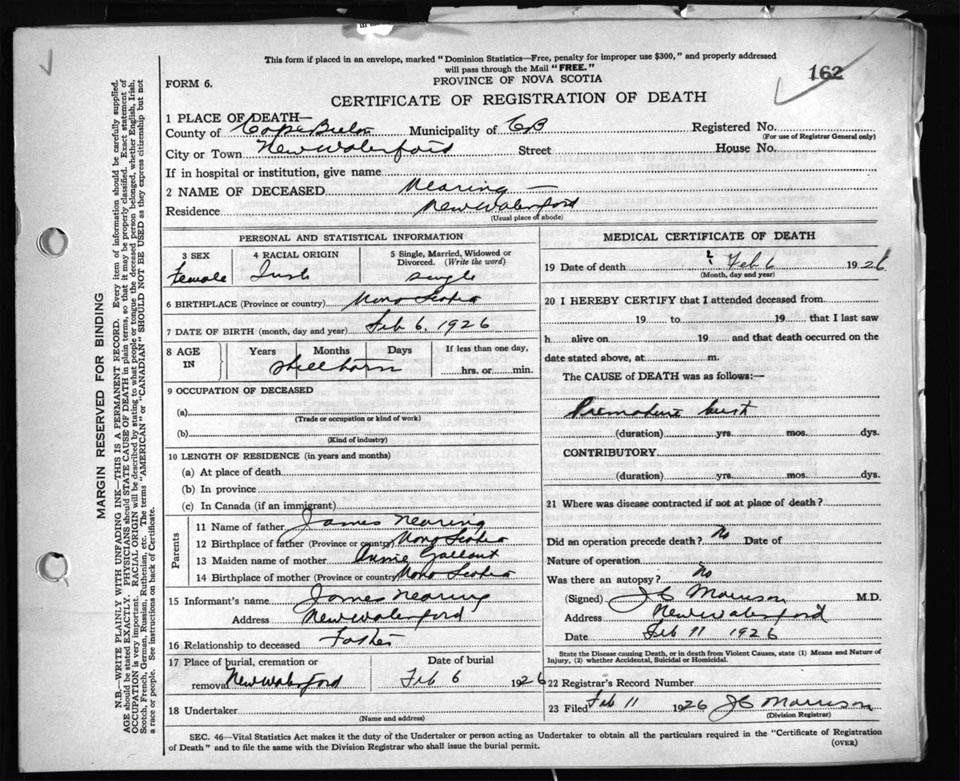 This form if placed in an envelope, marked "Dominion Statistics—Free, penalty for improper use $300," and properly addressed
will pass through the Mail "FREE."
162
FORM 6.
PROVINCE OF NOVA SCOTIA
CERTIFICATE OF REGISTRATION OF DEATH
1 PLACE OF DEATH—
County of Cape Breton Municipality of CB Registered No.
(For use of Registrar General only)
City or Town New Waterford Street House No.
If in hospital or institution, give name
2 NAME OF DECEASED Nearing —
Residence New Waterford
(Usual place of abode)
PERSONAL AND STATISTICAL INFORMATION
3 SEX 4 RACIAL ORIGIN 5 Single, Married, Widowed or
Divorced. (Write the word)
Female Irish Single
6 BIRTHPLACE (Province or country) Nova Scotia
7 DATE OF BIRTH (month, day and year) Feb 6, 1926
8 AGE IN Years Months Days If less than one day,
Stillborn hrs. or min.
9 OCCUPATION OF DECEASED
(a)
(Trade or occupation or kind of work)
(b)
(Kind of industry)
10 LENGTH OF RESIDENCE (in years and months)
(a) At place of death
(b) In province
(c) In Canada (if an immigrant)
Parents
11 Name of father James Nearing
12 Birthplace of father (Province or country) Nova Scotia
13 Maiden name of mother Annie Gallant
14 Birthplace of mother (Province or country) Nova Scotia
15 Informant's name James Nearing
Address New Waterford
16 Relationship to deceased Father
17 Place of burial, cremation or Date of burial
removal New Waterford Feb 6 1926
18 Undertaker
(Name and address)
MEDICAL CERTIFICATE OF DEATH
19 Date of death Feb 6 1926
(Month, day and year)
20 I HEREBY CERTIFY that I attended deceased from
19 to 19 that I last saw
h alive on 19 and that death occurred on the
date stated above, at m.
The CAUSE of DEATH was as follows:—
Premature birth
(duration) yrs. mos. dys.
CONTRIBUTORY
(duration) yrs. mos. dys.
21 Where was disease contracted if not at place of death?
Did an operation precede death? No Date of
Nature of operation
Was there an autopsy? No
(Signed) J C Morrison M.D.
Address New Waterford
Date Feb 11 1926
State the Disease causing Death, or in death from Violent Causes, state (1) Means and Nature of
Injury, (2) whether Accidental, Suicidal or Homicidal.
22 Registrar's Record Number
23 Filed Feb 11 1926 J C Morrison
(Division Registrar)
SEC. 46—Vital Statistics Act makes it the duty of the Undertaker or person acting as Undertaker to obtain all the particulars required in the "Certificate of Registration
of Death" and to file the same with the Division Registrar who shall issue the burial permit.
(OVER)
MARGIN RESERVED FOR BINDING
N.B.—WRITE PLAINLY WITH UNFADING INK—THIS IS A PERMANENT RECORD. Every item of information should be carefully supplied.
AGE should be stated EXACTLY. PHYSICIANS should STATE CAUSE OF DEATH in plain terms, so that it may be properly classified. Exact statement of
OCCUPATION is very important. RACIAL ORIGIN will be described by stating to what people or tongue the deceased person belonged, whether English, Irish,
Scotch, French, German, Russian, Ruthenian, etc. The terms "AMERICAN" or "CANADIAN" SHOULD NOT BE USED as they express citizenship but not
a race or people. See instructions on back of Certificate.